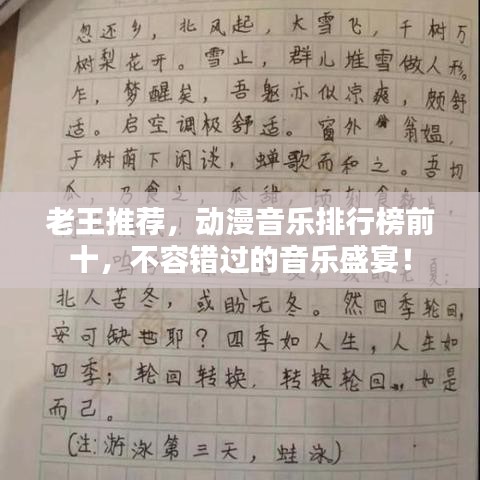 忽还乡，北风起，大雪飞，千树万
树梨花开。雪止，群儿堆雪做人形。
乍，梦醒矣，吾躯亦似凉爽，颇舒
适。启空调极舒适。窗外翁媪，
于树荫下闲谈，蝉歌而和之。吾切
老王推荐，动漫音乐排行榜前
十，不容错过的音乐盛宴！
北人苦冬，或盼无冬。然四季轮回，
安可缺也耶？四季如人生，人生如
四季；轮回转换，转换轮回，如是
而已。
（注：游泳第三天，蛙泳。）